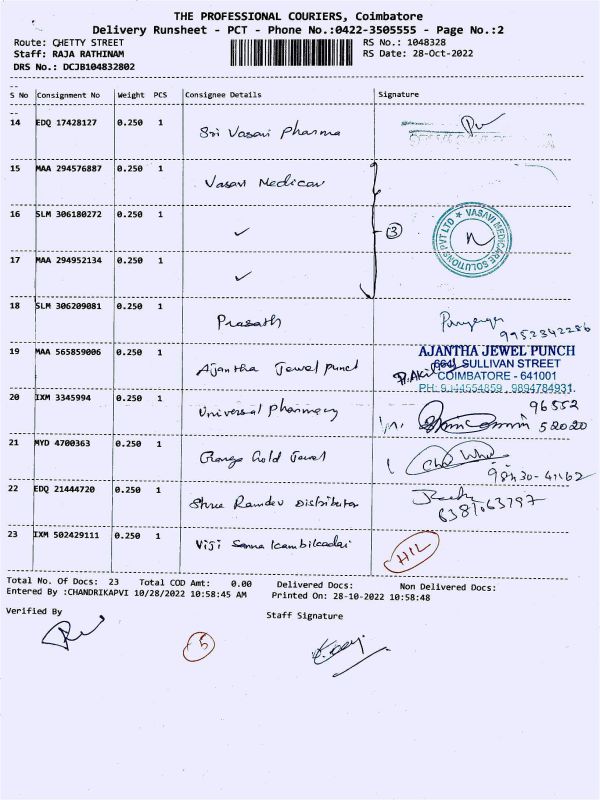 THE PROFESSIONAL COURIERS, Coimbatore
Delivery Runsheet - PCT - Phone No.:0422-3505555 - Page No.:2
Route: CHETTY STREET RS No.: 1048328
Staff: RAJA RATHINAM RS Date: 28-Oct-2022
DRS No.: DCJB104832802
S No Consignment No Weight PCS Consignee Details Signature
14 EDQ 17428127 0.250 1 Sri Vasavi Pharma
15 MAA 294576887 0.250 1 Vasavi Medicav
16 SLM 306180272 0.250 1 ✓
3
VASAVI MEDICARE SOLUTIONS PVT LTD
17 MAA 294952134 0.250 1 ✓
18 SLM 306209081 0.250 1 Prasath
9952342286
19 MAA 565859006 0.250 1 Ajantha Jewel punch
AJANTHA JEWEL PUNCH
SULLIVAN STREET
COIMBATORE - 641001
9894784931
20 IXM 3345994 0.250 1 Universal Pharmacy
96552
52020
21 MYD 4700363 0.250 1 Ganga Gold Jewel
22 EDQ 21444720 0.250 1 Shree Ramdev Distributor
23 IXM 502429111 0.250 1 Viji
H12
Total No. Of Docs: 23 Total COD Amt: 0.00 Delivered Docs: Non Delivered Docs:
Entered By :CHANDRIKAPVI 10/28/2022 10:58:45 AM Printed On: 28-10-2022 10:58:48
Verified By Staff Signature
5